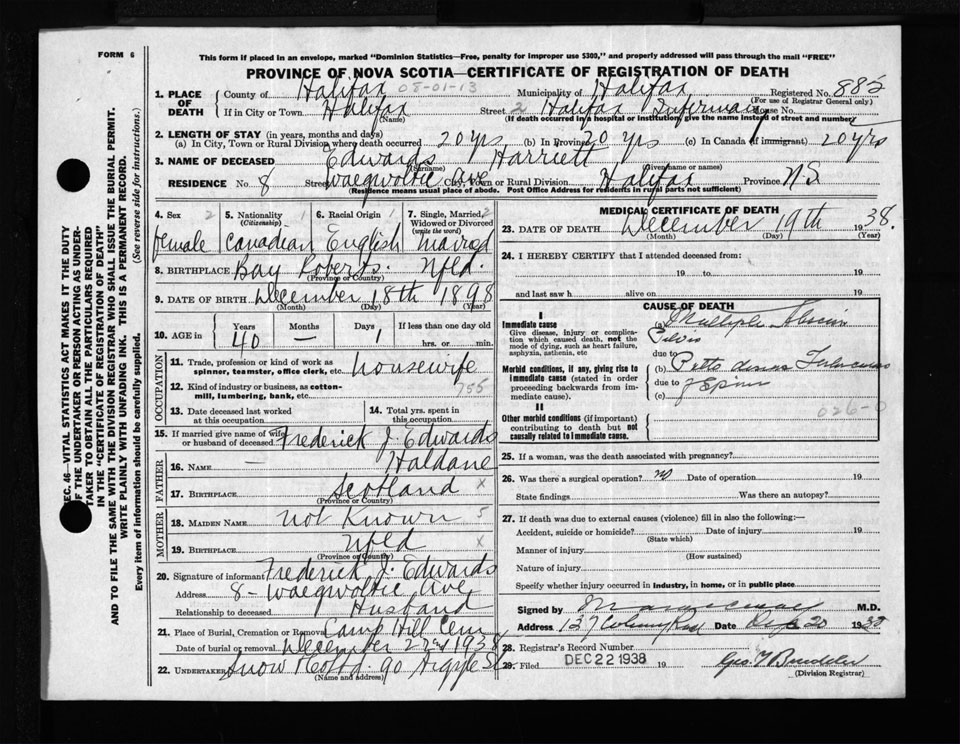 FORM 6
This form if placed in an envelope, marked "Dominion Statistics—Free, penalty for improper use $300," and properly addressed will pass through the mail "FREE"
PROVINCE OF NOVA SCOTIA—CERTIFICATE OF REGISTRATION OF DEATH
1. PLACE OF DEATH
County of Halifax 08-01-13 Municipality of Halifax Registered No. 885
(For use of Registrar General only)
If in City or Town Halifax Street 2 Halifax Infirmary House No.
(Name) (If death occurred in a hospital or institution, give the name instead of street and number)
2. LENGTH OF STAY (in years, months and days)
(a) In City, Town or Rural Division where death occurred 20 yrs (b) In Province 20 yrs (c) In Canada (if immigrant) 20 yrs
3. NAME OF DECEASED Edwards Harriett
(Surname) (Given name or names)
RESIDENCE No. 8 Street Waegwoltic Ave City, Town or Rural Division Halifax Province N.S.
(Residence means usual place of abode. Post Office Address for residents in rural parts not sufficient)
4. Sex 2 female
5. Nationality 1 Canadian
6. Racial Origin 1 English
7. Single, Married, Widowed or Divorced (write the word) 2 Married
8. BIRTHPLACE Bay Roberts. Nfld.
(Province or Country)
9. DATE OF BIRTH December 18th 1898
(Month) (Day) (Year)
10. AGE in Years 40 Months — Days 1 If less than one day old hrs. or min.
OCCUPATION
11. Trade, profession or kind of work as spinner, teamster, office clerk, etc. housewife
12. Kind of industry or business, as cotton-mill, lumbering, bank, etc.
13. Date deceased last worked at this occupation
14. Total yrs. spent in this occupation
15. If married give name of wife or husband of deceased Frederick J. Edwards
FATHER
16. NAME — Haldane
17. BIRTHPLACE Scotland x
(Province or Country)
MOTHER
18. MAIDEN NAME not known 5
19. BIRTHPLACE Nfld x
(Province or Country)
20. Signature of informant Frederick J. Edwards
Address 8 - Waegwoltic Ave
Relationship to deceased Husband
21. Place of Burial, Cremation or Removal Camp Hill Cem
Date of burial or removal December 22nd 1938
22. UNDERTAKER Snow & Co Ltd. 90 Argyle St
(Name and address)
MEDICAL CERTIFICATE OF DEATH
23. DATE OF DEATH December 19th 1938.
(Month) (Day) (Year)
24. I HEREBY CERTIFY that I attended deceased from:
19 to 19
and last saw h alive on 19
CAUSE OF DEATH
I
Immediate cause
Give disease, injury or complication which caused death, not the mode of dying, such as heart failure, asphyxia, asthenia, etc
(a) Multiple Abscess
Pelvis
due to
Morbid conditions, if any, giving rise to immediate cause (stated in order proceeding backwards from immediate cause).
(b) Potts disease Tuberculosis
due to of Spine
(c)
026-0
II
Other morbid conditions (if important) contributing to death but not causally related to immediate cause.
25. If a woman, was the death associated with pregnancy?
26. Was there a surgical operation? no Date of operation 19
State findings Was there an autopsy?
27. If death was due to external causes (violence) fill in also the following:—
Accident, suicide or homicide? Date of injury 19
(State which)
Manner of injury
(How sustained)
Nature of injury
Specify whether injury occurred in industry, in home, or in public place
Signed by M.D.
Address 137 Date Dec 20 1938
28. Registrar's Record Number
29. Filed DEC 22 1938 19
(Division Registrar)
SEC. 46—VITAL STATISTICS ACT MAKES IT THE DUTY OF THE UNDERTAKER OR PERSON ACTING AS UNDERTAKER TO OBTAIN ALL THE PARTICULARS REQUIRED IN THE "CERTIFICATE OF REGISTRATION OF DEATH" AND TO FILE THE SAME WITH THE DIVISION REGISTRAR WHO SHALL ISSUE THE BURIAL PERMIT.
WRITE PLAINLY WITH UNFADING INK. THIS IS A PERMANENT RECORD.
Every item of information should be carefully supplied. (See reverse side for instructions.)